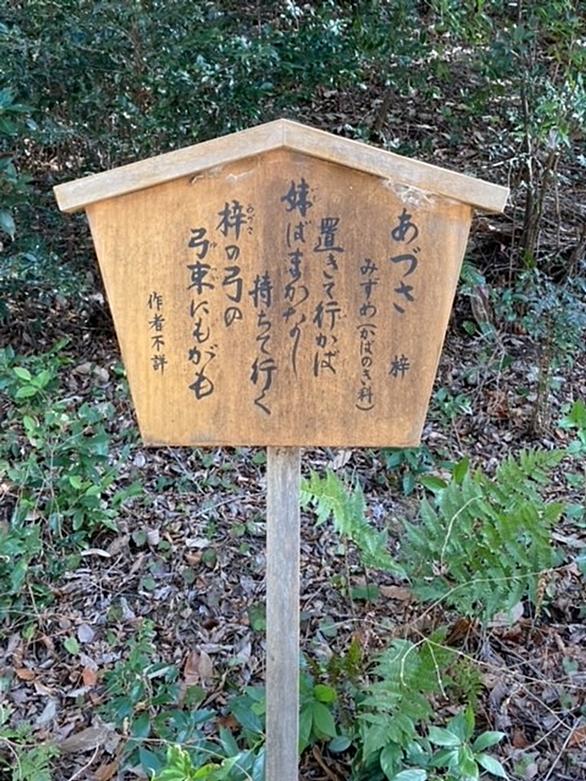 あづさ 梓
みずめ(かばのき科)
置きて行かば
妹ばまかなし
持ちて行く
梓の弓の
弓束にもがも
作者不詳